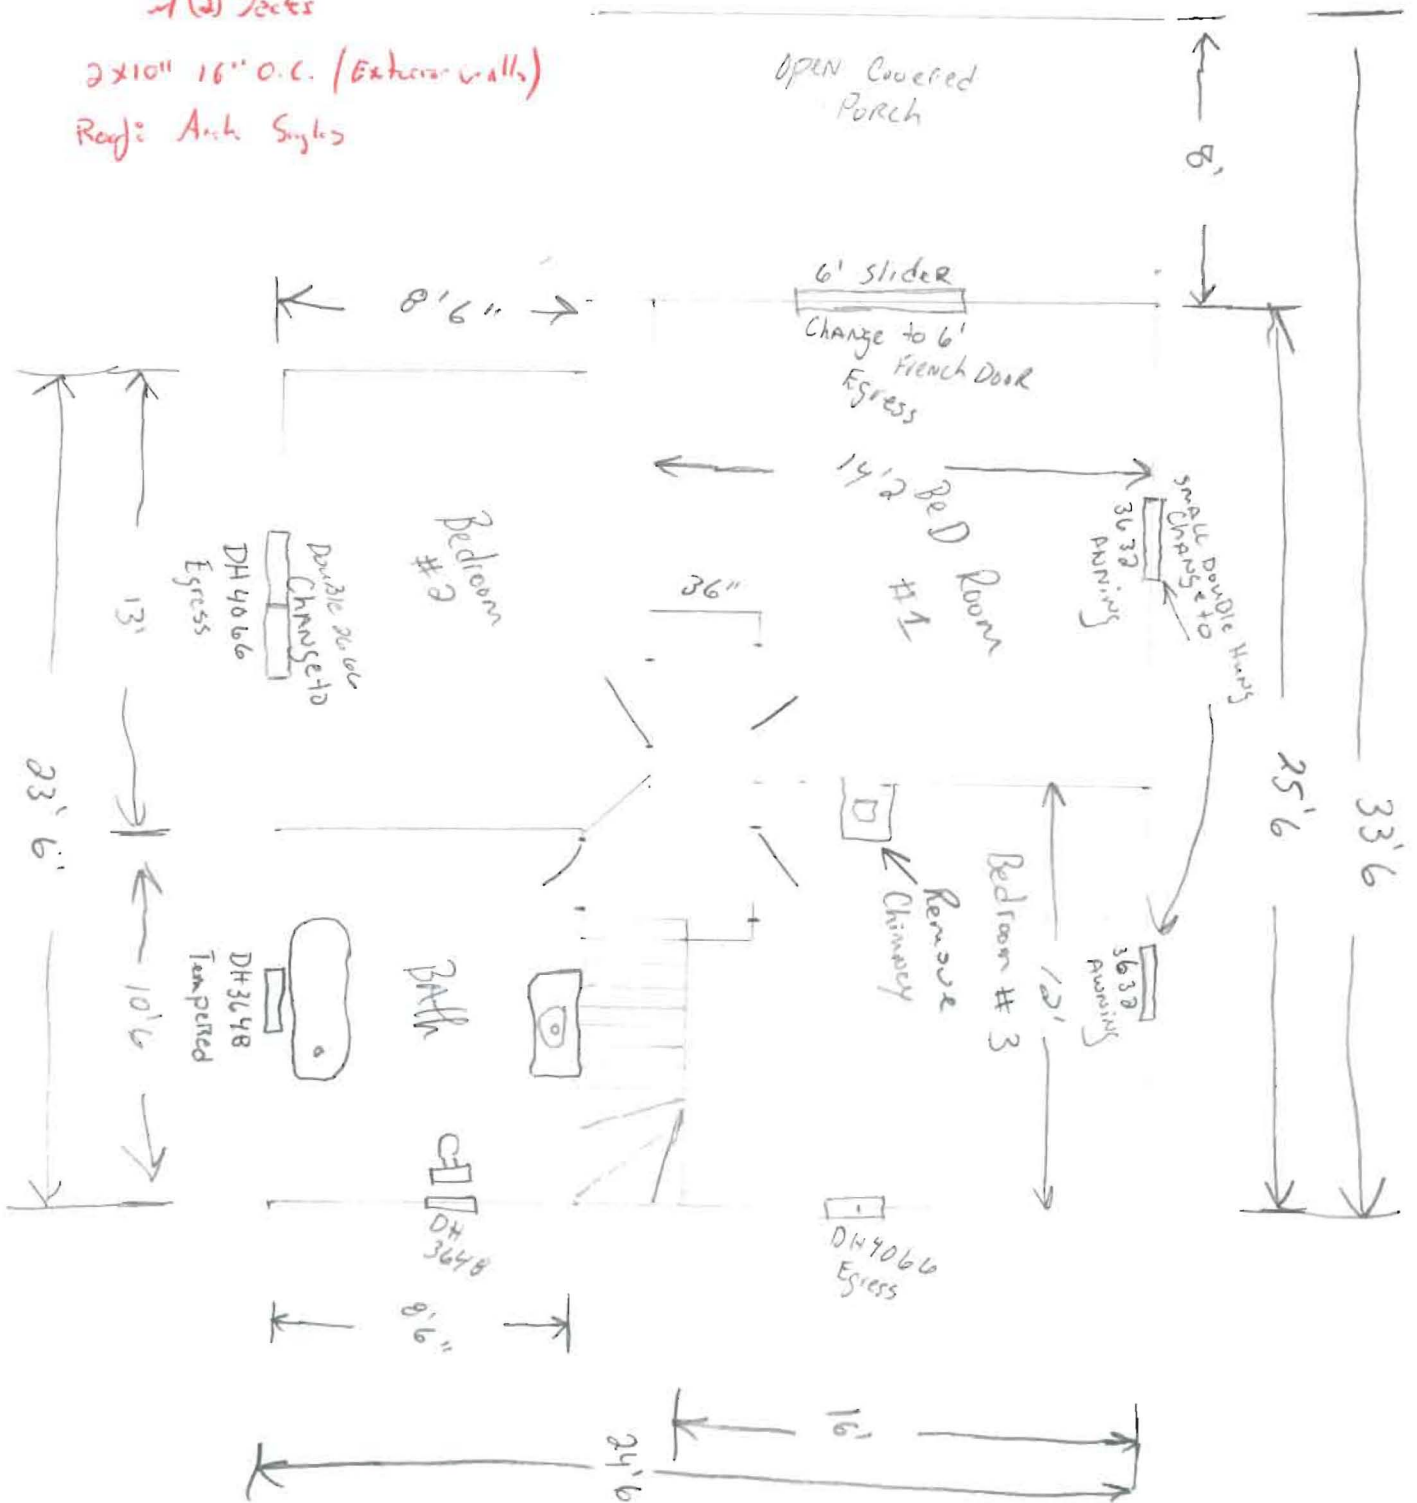 2x10" 16" O.C. (Exterior walls)
Roof: Arch
OPEN Covered
PORCH
8'
8'6"
6' slideR
Change to 6'
French DOOR
Egress
14'2
BeD Room
#1
SMALL DOUBLE HUNG
CHANGE to
3632
ANNING
Bedroom
#2
Double 2666
Change to
DH 4066
Egress
36"
13'
23'6"
25'6
33'6
Remove
Chimney
Bedroom #3
12'
3632
AWNING
DH3648
Tempered
BAth
10'6
DH
3648
DH4066
Egress
8'6"
16'
24'6